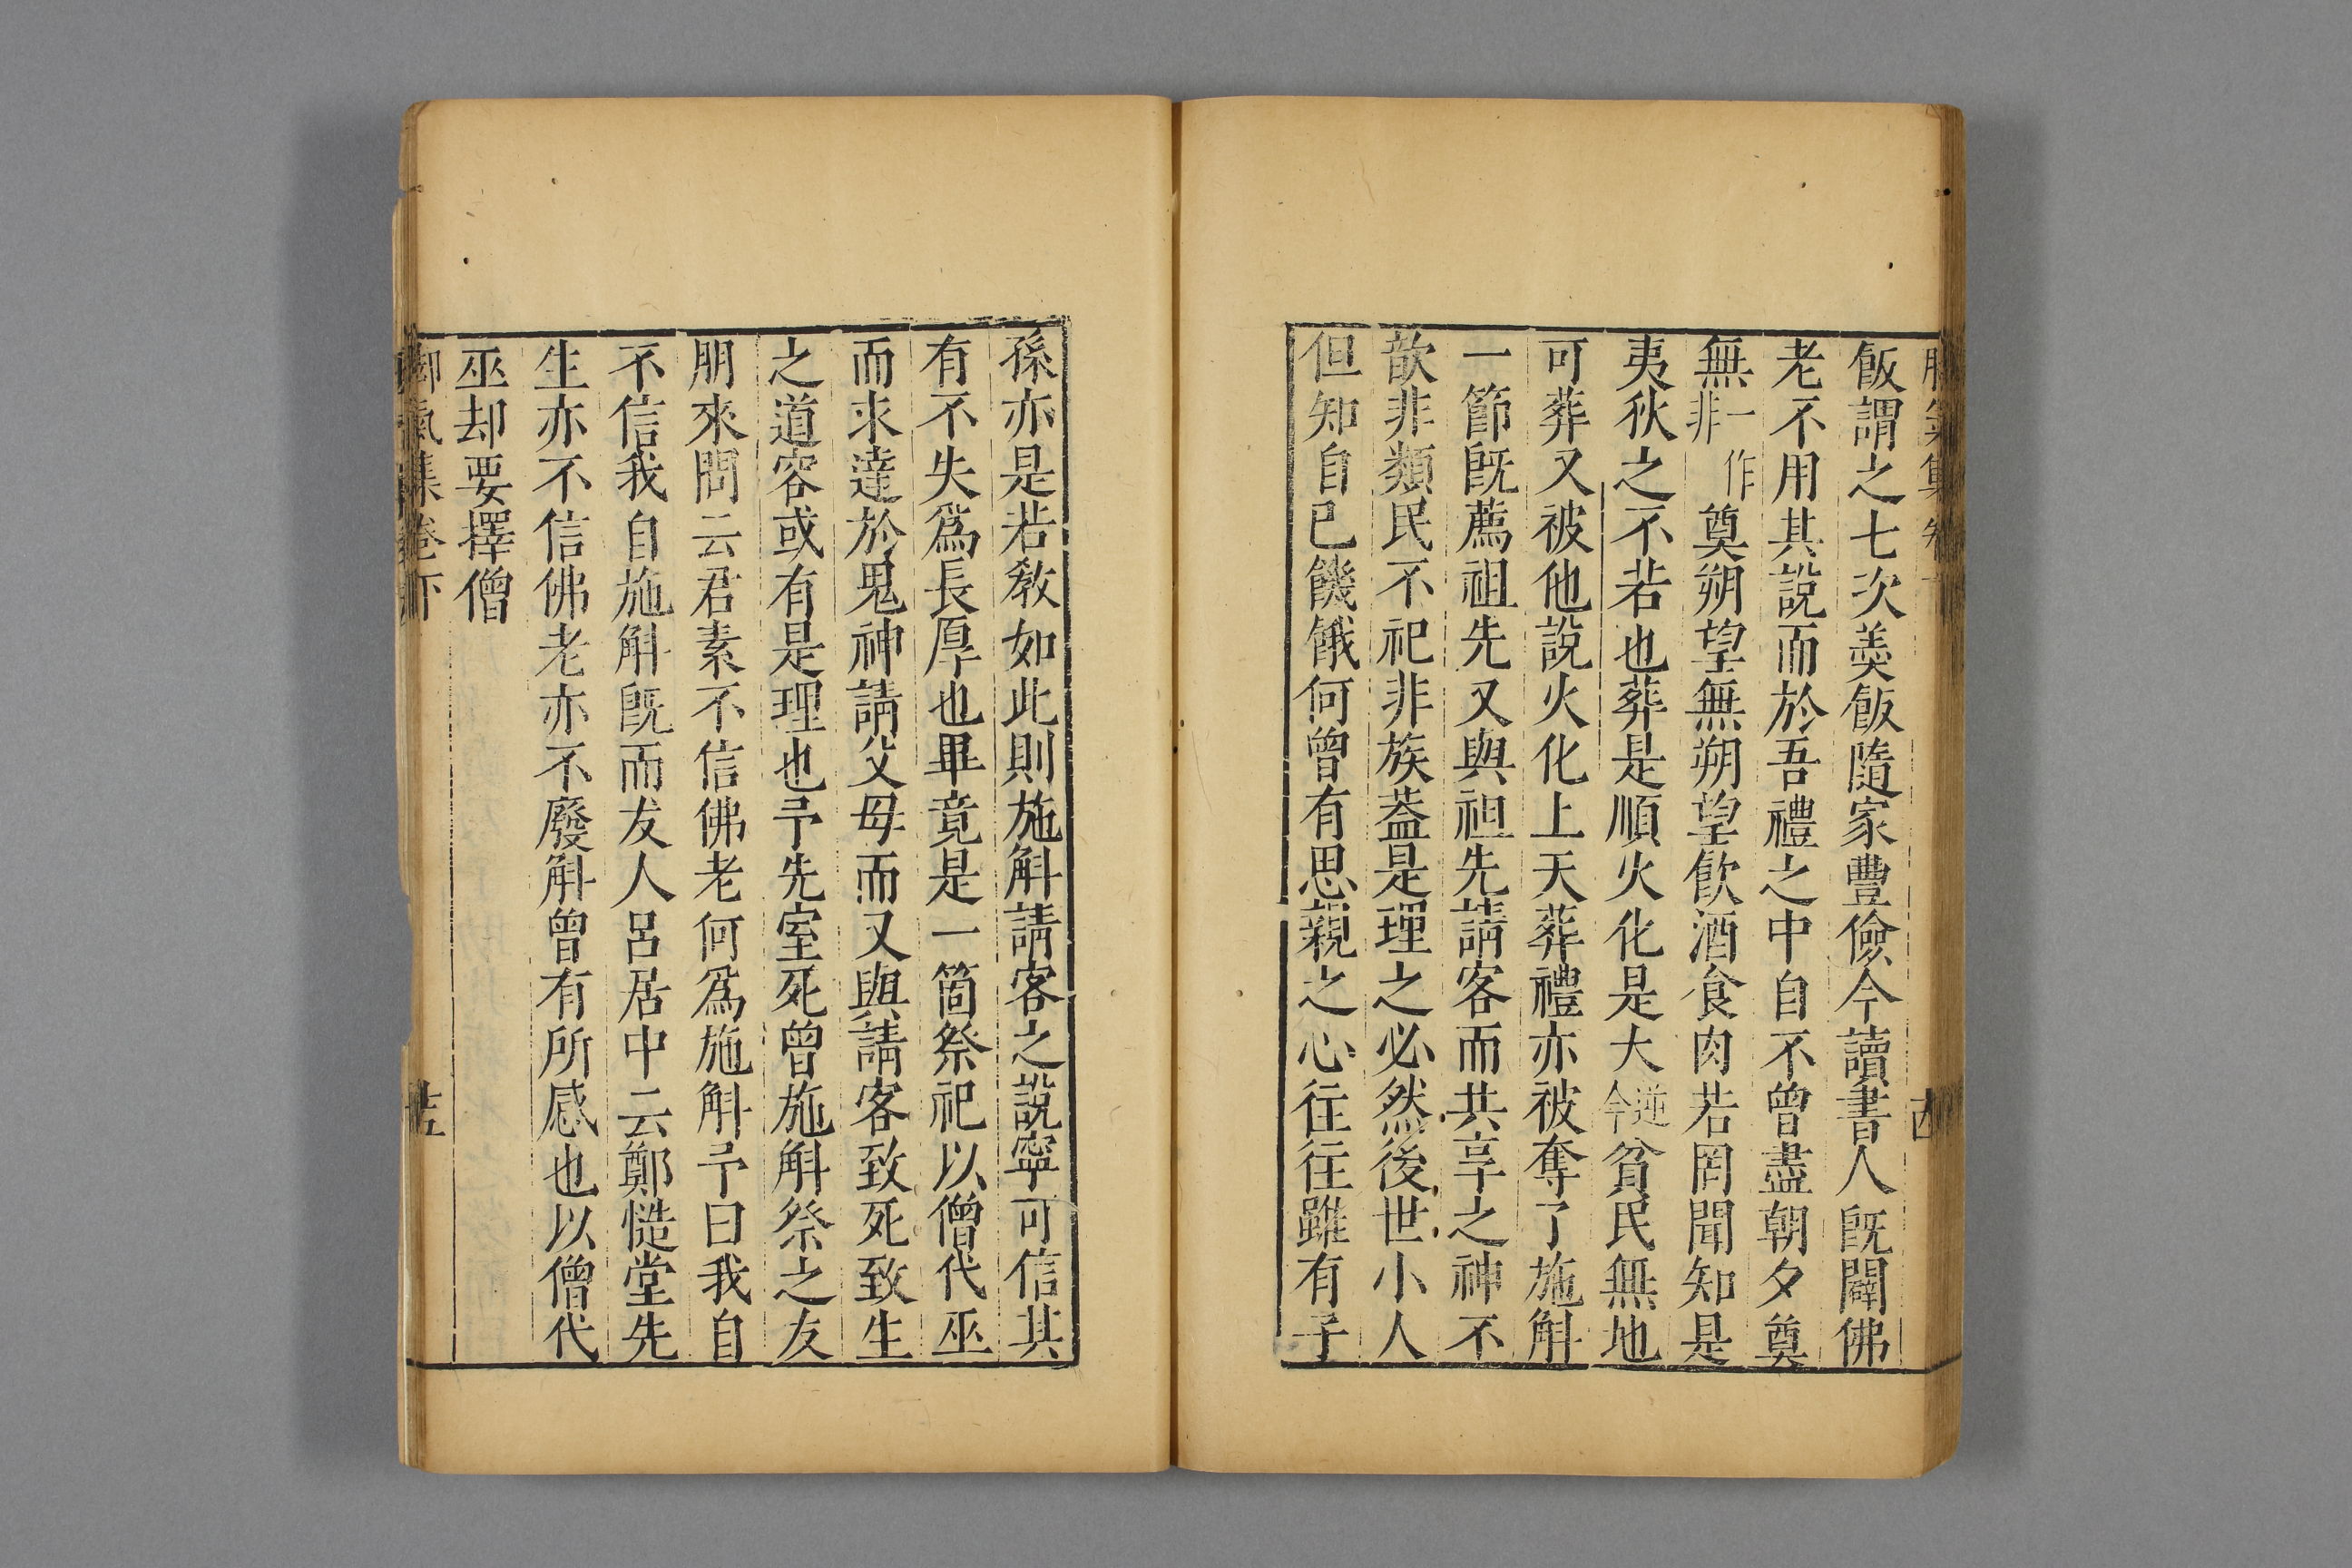 飯謂之七次羹飯隨家豐儉今讀書人旣闢佛
老不用其說而於吾禮之中自不曾盡朝夕奠
無一作非奠朔望無朔望飲酒食肉若罔聞知是
夷狄之不若也葬是順火化是大逆今貧民無地
可葬又被他說火化上天葬禮亦被奪了施斛
一節旣薦祖先又與祖先請客而共享之神不
歆非類民不祀非族蓋是理之必然後世小人
但知自已饑餓何曾有思親之心往往雖有子
孫亦是若教如此則施斛請客之說寧可信其
有不失爲長厚也畢竟是一箇祭祀以僧代巫
而求達於鬼神請父母而又與請客致死致生
之道容或有是理也予先室死曾施斛祭之友
朋來問云君素不信佛老何爲施斛予曰我自
不信我自施斛旣而友人呂居中云鄭慥堂先
生亦不信佛老亦不廢斛曾有所感也以僧代
巫却要擇僧
脚氣集卷下